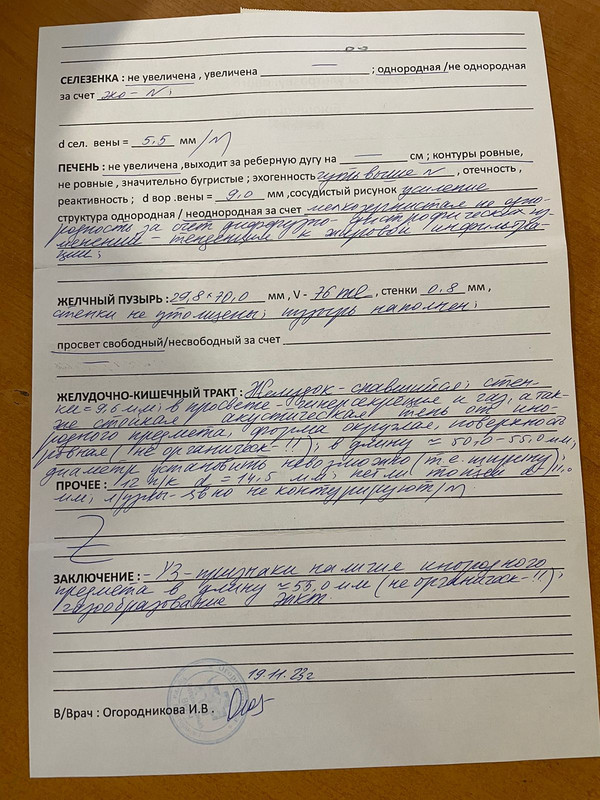 СЕЛЕЗЕНКА : не увеличена , увеличена — ; однородная /не однородная
за счет эхо - N ;
d сел. вены = 5,5 мм /N
ПЕЧЕНЬ : не увеличена ,выходит за реберную дугу на — см ; контуры ровные,
не ровные , значительно бугристые ; эхогенность чуть выше N , отечность ,
реактивность ; d вор .вены = 9,0 мм ,сосудистый рисунок усиление
структура однородная / неоднородная за счет мелкозернистая не одно-
родность за счет диффузно- дистрофических из-
менений - тенденция к жировой инфильтра-
ции ;
ЖЕЛЧНЫЙ ПУЗЫРЬ : 29,8 × 70,0 мм , V - 76 ml , стенки 0,8 мм ,
стенки не утолщены ; пузырь наполнен ;
просвет свободный/несвободный за счет
ЖЕЛУДОЧНО-КИШЕЧНЫЙ ТРАКТ : Желудок - спавшийся ; стен-
ки = 9,6 мм ; в просвете - гиперсекреция и газ, а так-
же стойкая акустическая тень от ино-
родного предмета, форма округлая, поверхность
ровная ( не органическ - !! ) ; в длину ≈ 50,0-55,0 мм ;
диаметр установить невозможно ( т.е ширину ) ;
ПРОЧЕЕ : 12 п/к d = 14,5 мм ; петли тощей d - 11,0
мм ; л/узлы - явно не контурируют /N
ЗАКЛЮЧЕНИЕ : - УЗ - признаки наличие инородного
предмета в длину ≈ 55,0 мм ( не органическ - !! ) ;
газообразование ЖКТ.
19.11.23г
В/Врач : Огородникова И.В .